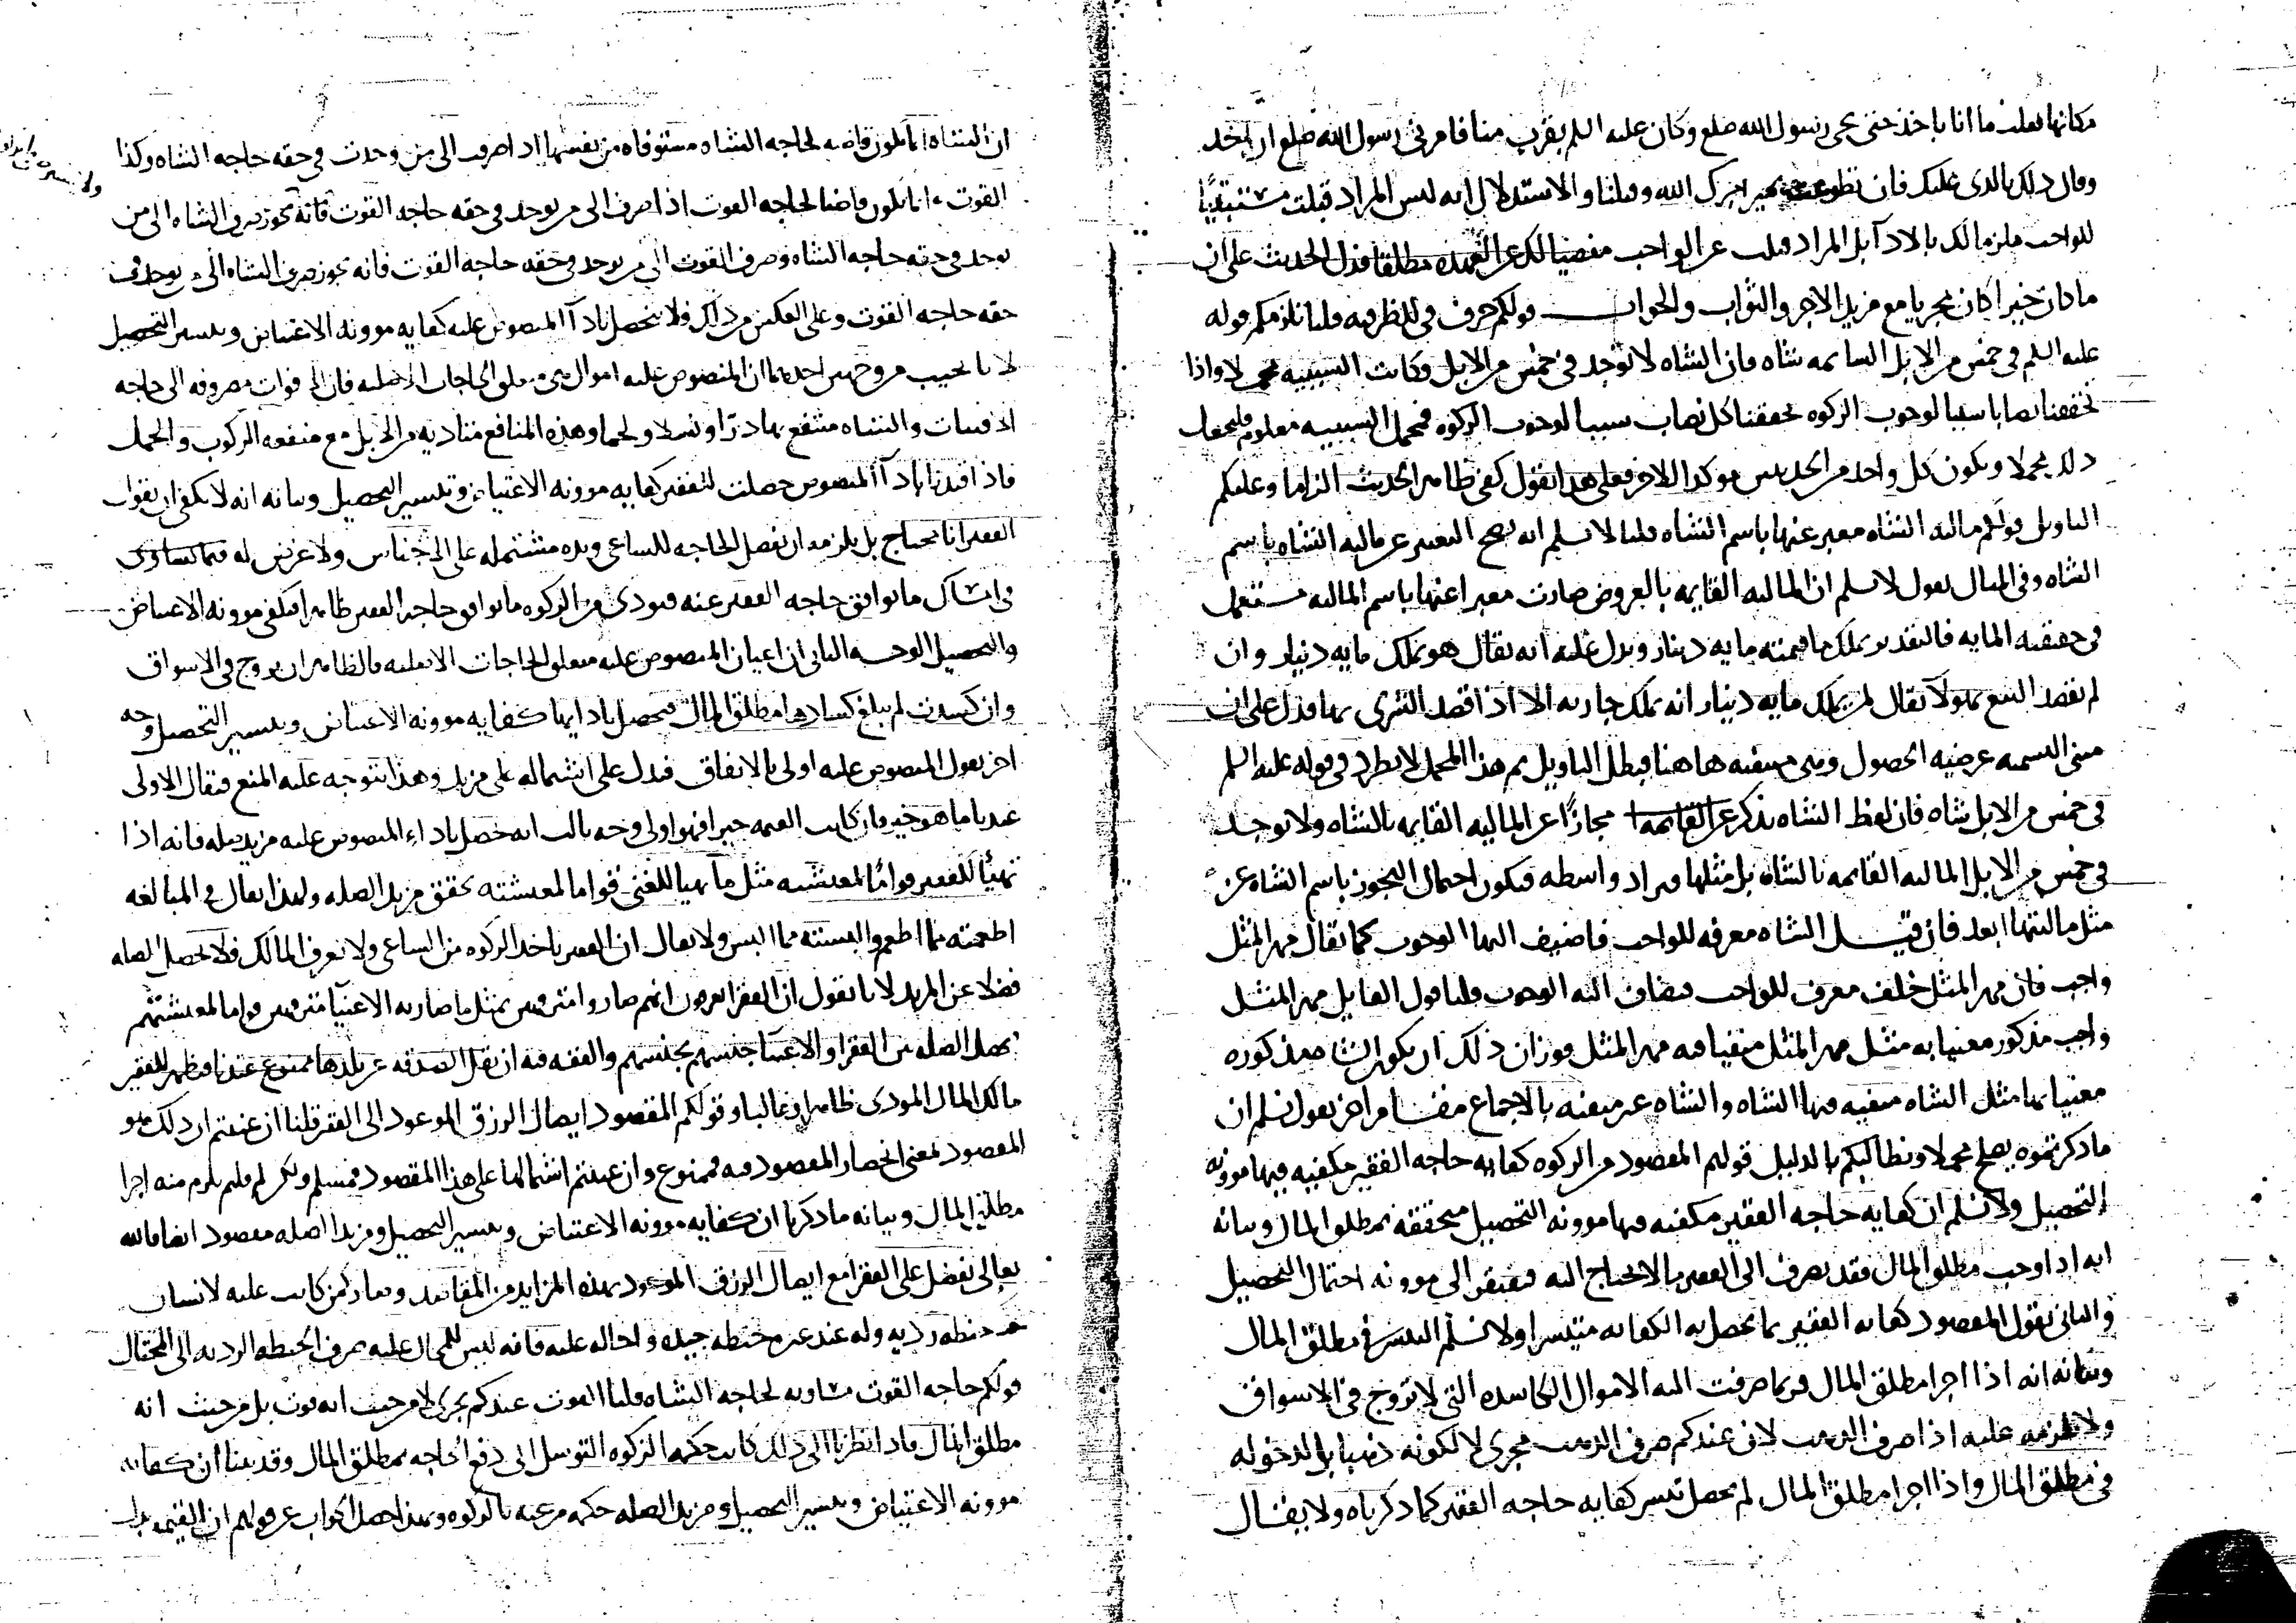 مكانها فقلت ما انا باخذ حتى يجى رسول الله صلع وكان عليه السلم بقرب منا فامرنى رسول الله صلع ان اخذ
وقال ذلك الذى عليك فان تطوعت بخير اجرك الله وقبلنا والاستدلال انه ليس المراد قبلت
للواجب ملزما لك بالادآ بل المراد قبلت عن الواجب مفضيا لك عن العهده مطلقا فدل الحديث على ان
ما كان خيرا كان مجزيا مع مزيد الاجر والثواب والجواب قولكم حرف فى للظرفيه قلنا نلزمكم قوله
عليه السلم فى خمس من الابل السايمه شاه فان الشاه لا توجد فى خمس من الابل وكانت السببيه محملا واذا
تحققنا نصابا سببا لوجوب الزكوه تحققنا كل نصاب سببا لوجوب الزكوه فمحمل السببيه معلوم فليجعل
ذلك محملا ويكون كل واحد من الحديثين موكدا للاخر فعلى هذا نقول كفى ظاهر الحديث الزاما وعليكم
التاويل قولكم ماليه الشاه معبر عنها باسم الشاه قلنا لا نسلم انه يصح التعبير عن ماليه الشاه باسم
الشاه وفى المثال نقول لا نسلم ان الماليه القايمه بالعروض صارت معبرا عنها باسم الماليه مستعمل
فى حقيقته المايه فالتقدير يملك ما قيمته مايه دينار ويدل عليه انه يقال هو يملك مايه دينار وان
لم يقصد البيع بها ولا يقال لمن يملك مايه دينار انه يملك جاريه الا اذا قصد التسرى بها فدل على ان
مبنى التسميه عرضيه الحصول وهى منتفيه هاهنا فبطل التاويل ثم هذا المحمل لا يطرد فى قوله عليه السلم
فى خمس من الابل شاه فان لفظ الشاه يذكر مجازًا عن الماليه القايمه بالشاه ولا توجد
فى خمس من الابل الماليه القايمه بالشاه بل مثلها فيزاد واسطه فيكون احتمال التجوز باسم الشاه عن
مثل ماليتها ابعد فان قيل الشاه معرفه للواجب فاضيف اليها الوجوب كما يقال مهر المثل
واجب فان مهر المثل خلف معرف للواجب فيضاف اليه الوجوب قلنا قول القايل مهر المثل
واجب مذكور معنيا به مثل مهر المثل منفيا فيه مهر المثل فوزان ذلك ان يكون الشاه مذكوره
معنيا بها مثل الشاه منفيه فيها الشاه والشاه غير منفيه بالاجماع مقام اخر نقول نسلم ان
ما ذكرتموه يصلح محملا ونطالبكم بالدليل قولهم المقصود من الزكوه كفايه حاجه الفقير مكفيه فيها موونه
التحصيل ولا نسلم ان كفايه حاجه الفقير مكفيه فيها موونه التحصيل متحققه بمطلق المال وبيانه
انه اذا وجب مطلق المال فقد يصرف الى الفقير ما لا يحتاج اليه فيفتقر الى موونه احتمال التحصيل
والثانى نقول المقصود كفايه الفقير بما يحصل به الكفايه متيسرا ولا نسلم التيسر فى مطلق المال
وبيانه انه اذا اجزا مطلق المال فربما صرفت اليه الاموال الكاسده التى لا تروج فى الاسواق
ولا يلزمه عليه اذا صرف الذهب لان عندكم صرف الذهب مجزى لا لكونه ذهبا بل لدخوله
فى مطلق المال واذا اجزا مطلق المال لم يحصل تيسر كفايه حاجه الفقير كما ذكرناه ولا يقال
ان الشاه انما يكون قاضيه لحاجه الشاه مستوفاه من نفسها اذا صرفت الى من وجدت فى حقه حاجه الشاه وكذا
القوت انما يكون قاضيا لحاجه القوت اذا صرف الى من يوجد فى حقه حاجه القوت فانه يجوز صرف الشاه الى من
يوجد فى حقه حاجه الشاه وصرف القوت الى من يوجد فى حقه حاجه القوت فانه يجوز صرف الشاه الى من يوجد فى
حقه حاجه القوت وعلى العكس من ذلك فلا يتحصل بادآ المنصوص عليه كفايه موونه الاعتياض وتيسير التحصيل
لانا نجيب من وجهين احدهما ان المنصوص عليه اموال هى متعلق الحاجات الاصليه فان الاقوات مصروفه الى حاجه
الاقتيات والشاه منتفع بها درّا ونسلا ولحما وهذه المنافع متاديه من الابل مع منفعه الركوب والحمل
فاذا قيدنا بادآ المنصوص حصلت للفقير كفايه موونه الاعتياض وتيسير التحصيل وبيانه انه لا يكفى ان يقول
الفقير انا محتاج بل يلزمه ان يفصل الحاجه للساعى ويده مشتمله على الاجناس ولا غرض له فيما يساوى
فى امساك ما يوافق حاجه الفقير عنه فيودى من الزكوه ما يوافق حاجه الفقير ظاهرا فيكفى موونه الاعتياض
والتحصيل الوجه الثانى ان اعيان المنصوص عليه متعلق الحاجات الاصليه فالظاهر ان يروج فى الاسواق
وان كسدت لم يبلغ كسادها مطلق المال فيحصل بادايها كفايه موونه الاعتياض وتيسير التحصيل وجه
اخر نقول المنصوص عليه اولى بالاتفاق فدل على اشتماله على مزيد وهذا يتوجه عليه المنع فيقال الاولى
عندنا ما هو خير وان كانت القيمه خيرا فهو اولى وجه ثالث انه حصل باداء المنصوص عليه مزيد صله فانه اذا
تهيأ للفقير قوامًا لمعيشته مثل ما تهيا للغنى قواما لمعيشته تحقق مزيد الصله ولهذا يقال فى المبالغه
اطعمته مما اطعم والبسته مما البس ولا يقال ان الفقير ياخذ الزكوه من الساعى ولا يعرف المالك فلا يحصل الصله
فضلا عن المزيد لانا نقول ان الفقرا يعرفون انهم صاروا مترفهين بمثل ما صار به الاغنيآ مترفهين قواما لمعيشتهم
يحصل الصله بين الفقرا والاغنيا جنسهم بجنسهم والفقه فيه ان نقل الصدقه عن بلدها ممنوع عندنا فيظهر للفقير
مالك المال المودى ظاهرا وغالبا وقولكم المقصود ايصال الرزق الموعود الى الفقر قلنا ان عنيتم ان ذلك هو
المقصود بمعنى انحصار المقصود فيه فممنوع وان عنيتم اشتمالها على هذا المقصود فمسلم ولكن لم قلتم يلزم منه اجزا
مطلق المال وبيانه ما ذكرنا ان كفايه موونه الاعتياض وتيسير التحصيل ومزيد الصله مقصود ايضا فالله
تعالى تفضل على الفقرا مع ايصال الرزق الموعود بهذه المزايد من المقاصد وصار كمن كانت عليه لانسان
حنطه رديه وله عند غيره حنطه جيده واحاله عليه فانه ليس للمحال عليه صرف الحنطه الرديه الى المحتال
قولكم حاجه القوت مساويه لحاجه الشاه قلنا القوت عندكم يجزى لا من حيث انه قوت بل من حيث انه
مطلق المال فاذا نظرنا الى ذلك كانت حكمه الزكوه التوسل الى دفع الحاجه بمطلق المال وقد بينا ان كفايه
موونه الاعتياض وتيسير التحصيل ومزيد الصله حكمه مرعيه بالزكوه وبهذا حصل الجواب عن قولهم ان القيمه بدل